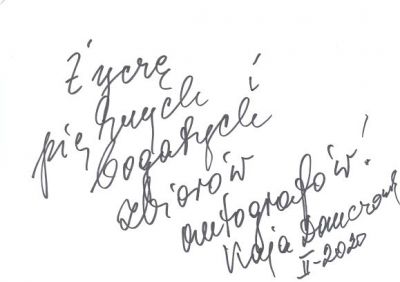 Życzę
pięknych i
bogatych
zbiorów
autografów!
Kaja Danczowska
II-2020